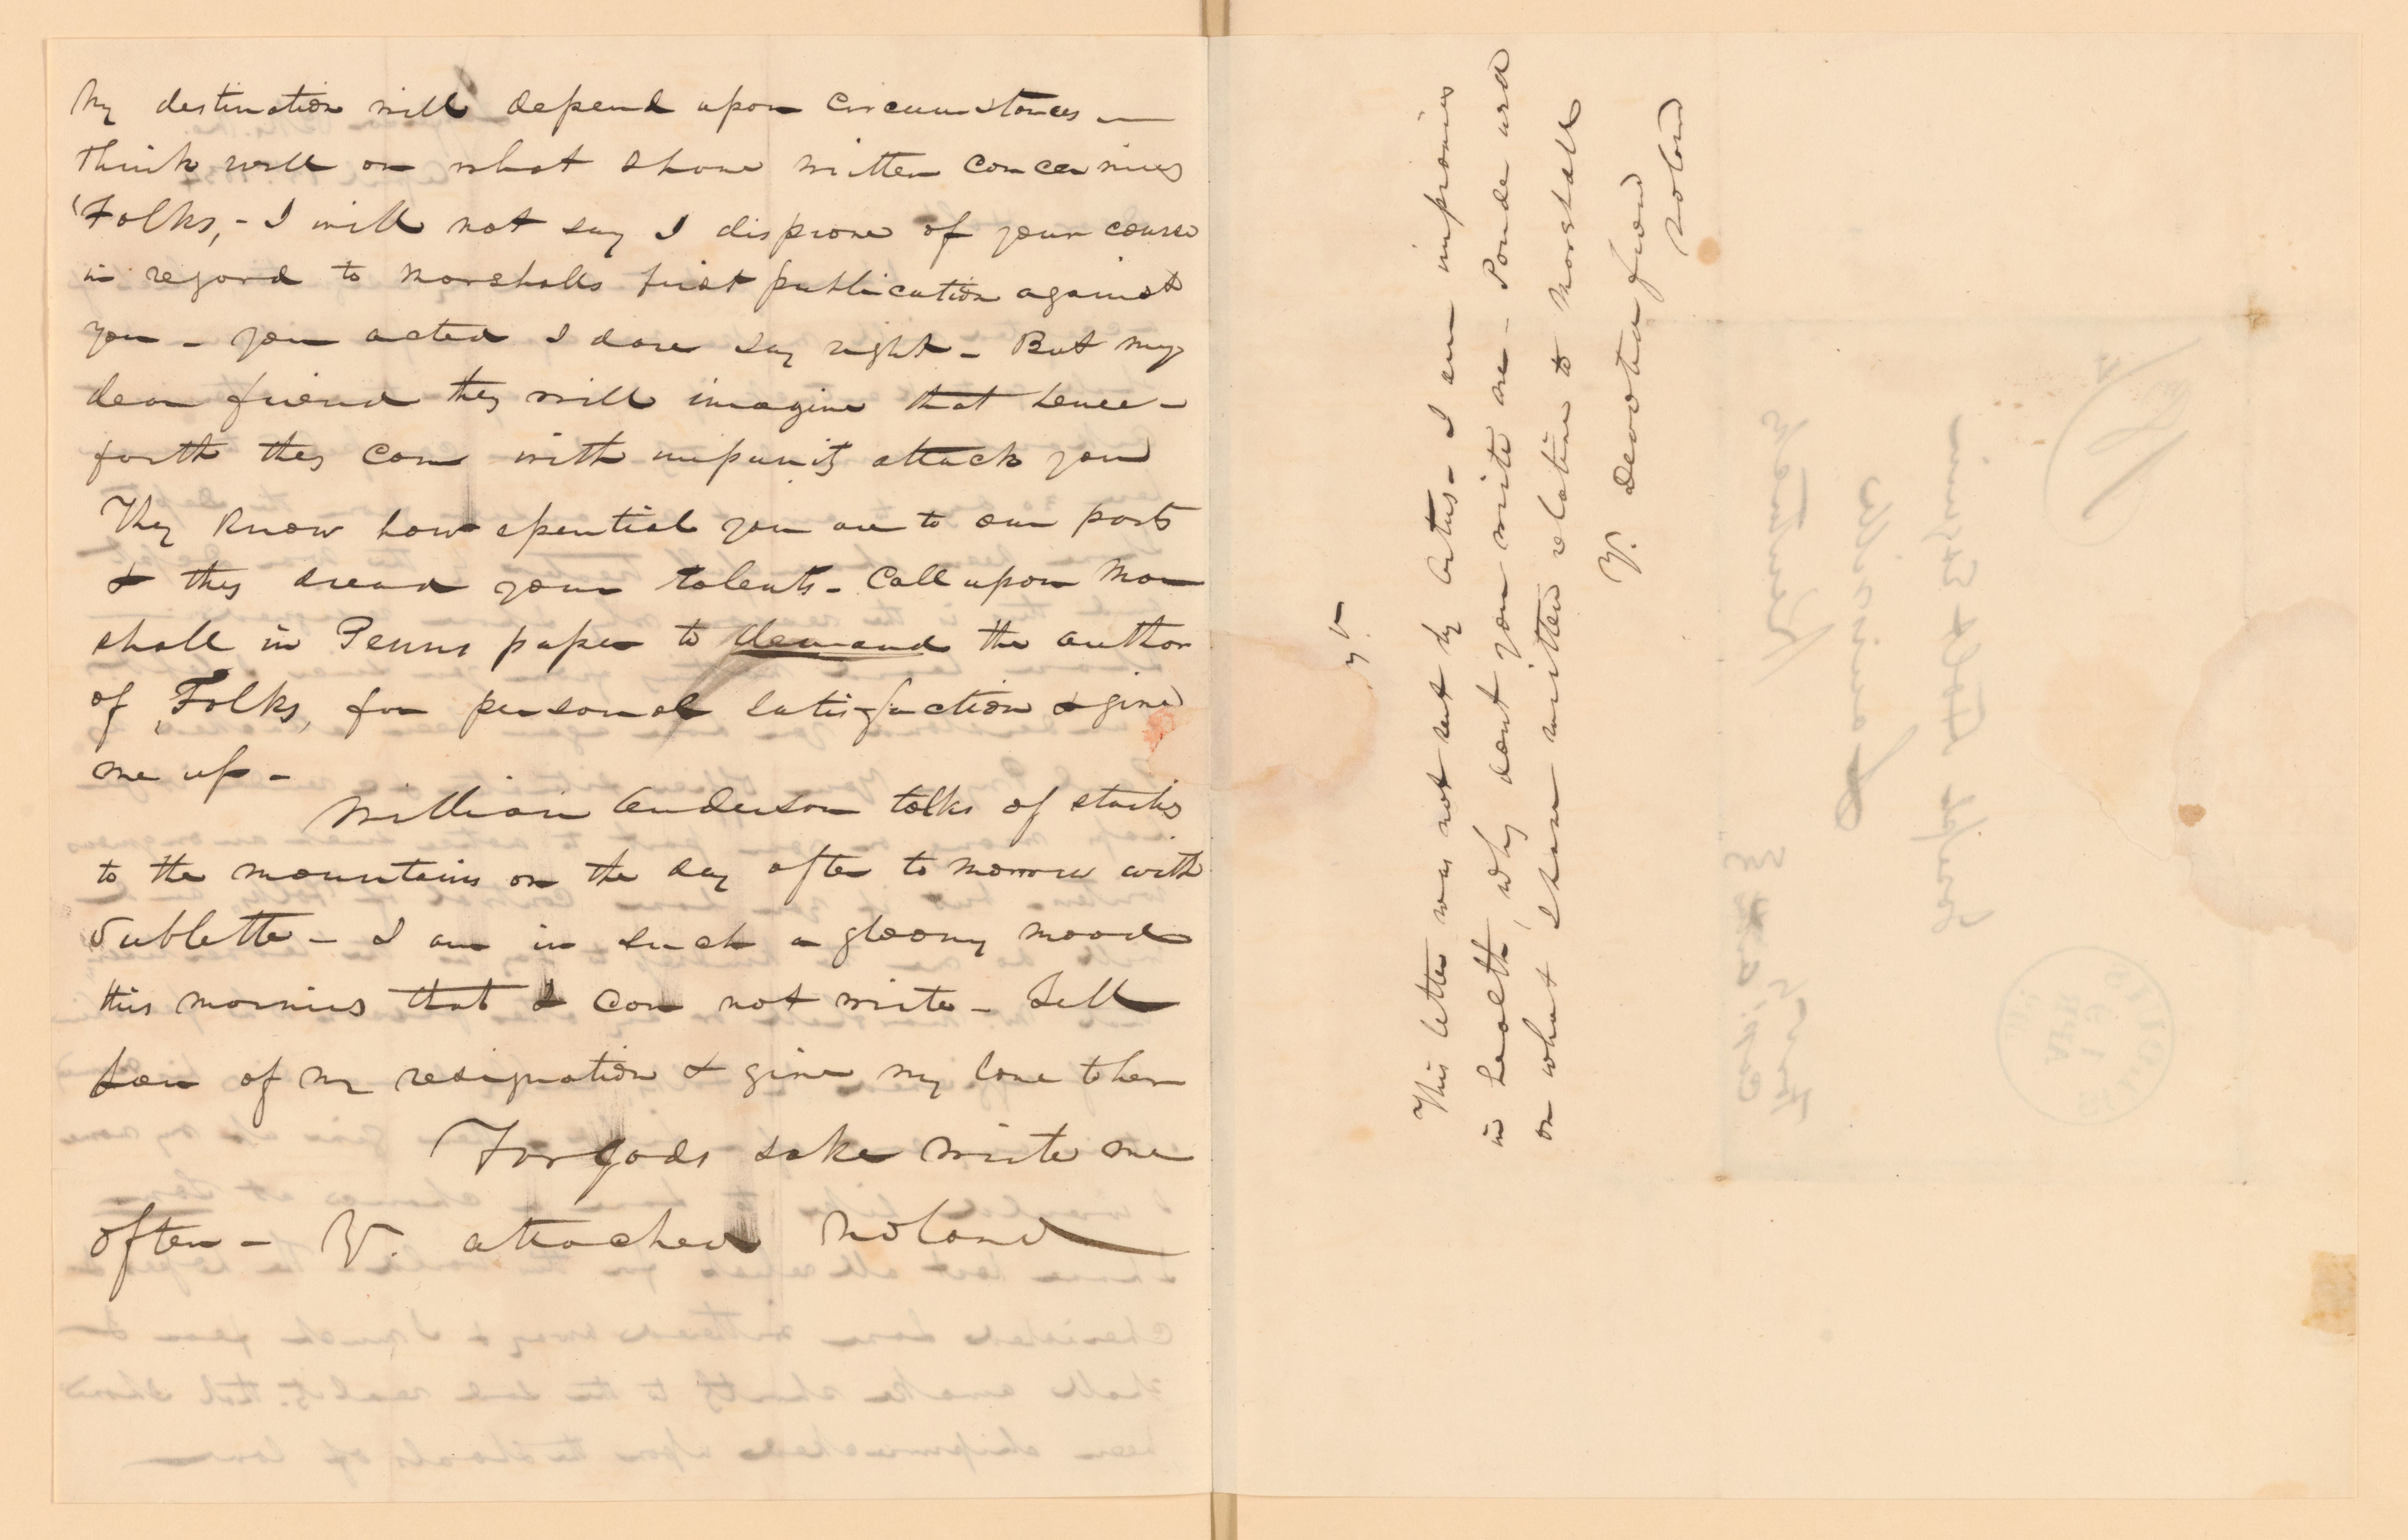 My destination will depend upon circumstances —
think well on what I have written concerning
'Folks, - I will not say I disprove of your course
in regard to Marshalls first publication against
you - you acted I dare say right - But my
dear friend they will imagine that hence-
forth they can with impunity attack you
They know how essential you are to our party
& they dread your talents - Call upon Mar
shall in Penns paper to demand the author
of 'Folks, for personal satisfaction & give
me up -
William Anderson talks of starting
to the mountains on the day after to morrow with
Sublette - I am in such a gloomy mood
this morning that I can not write - Tell
of my resignation & give my love to her
For gods sake write me
often - Yr. attached Noland
This letter was not sent by - I am improving
in health, why dont you write me - Ponder well
on what I have written relative to Marshall
Yr. devoted friend
Noland